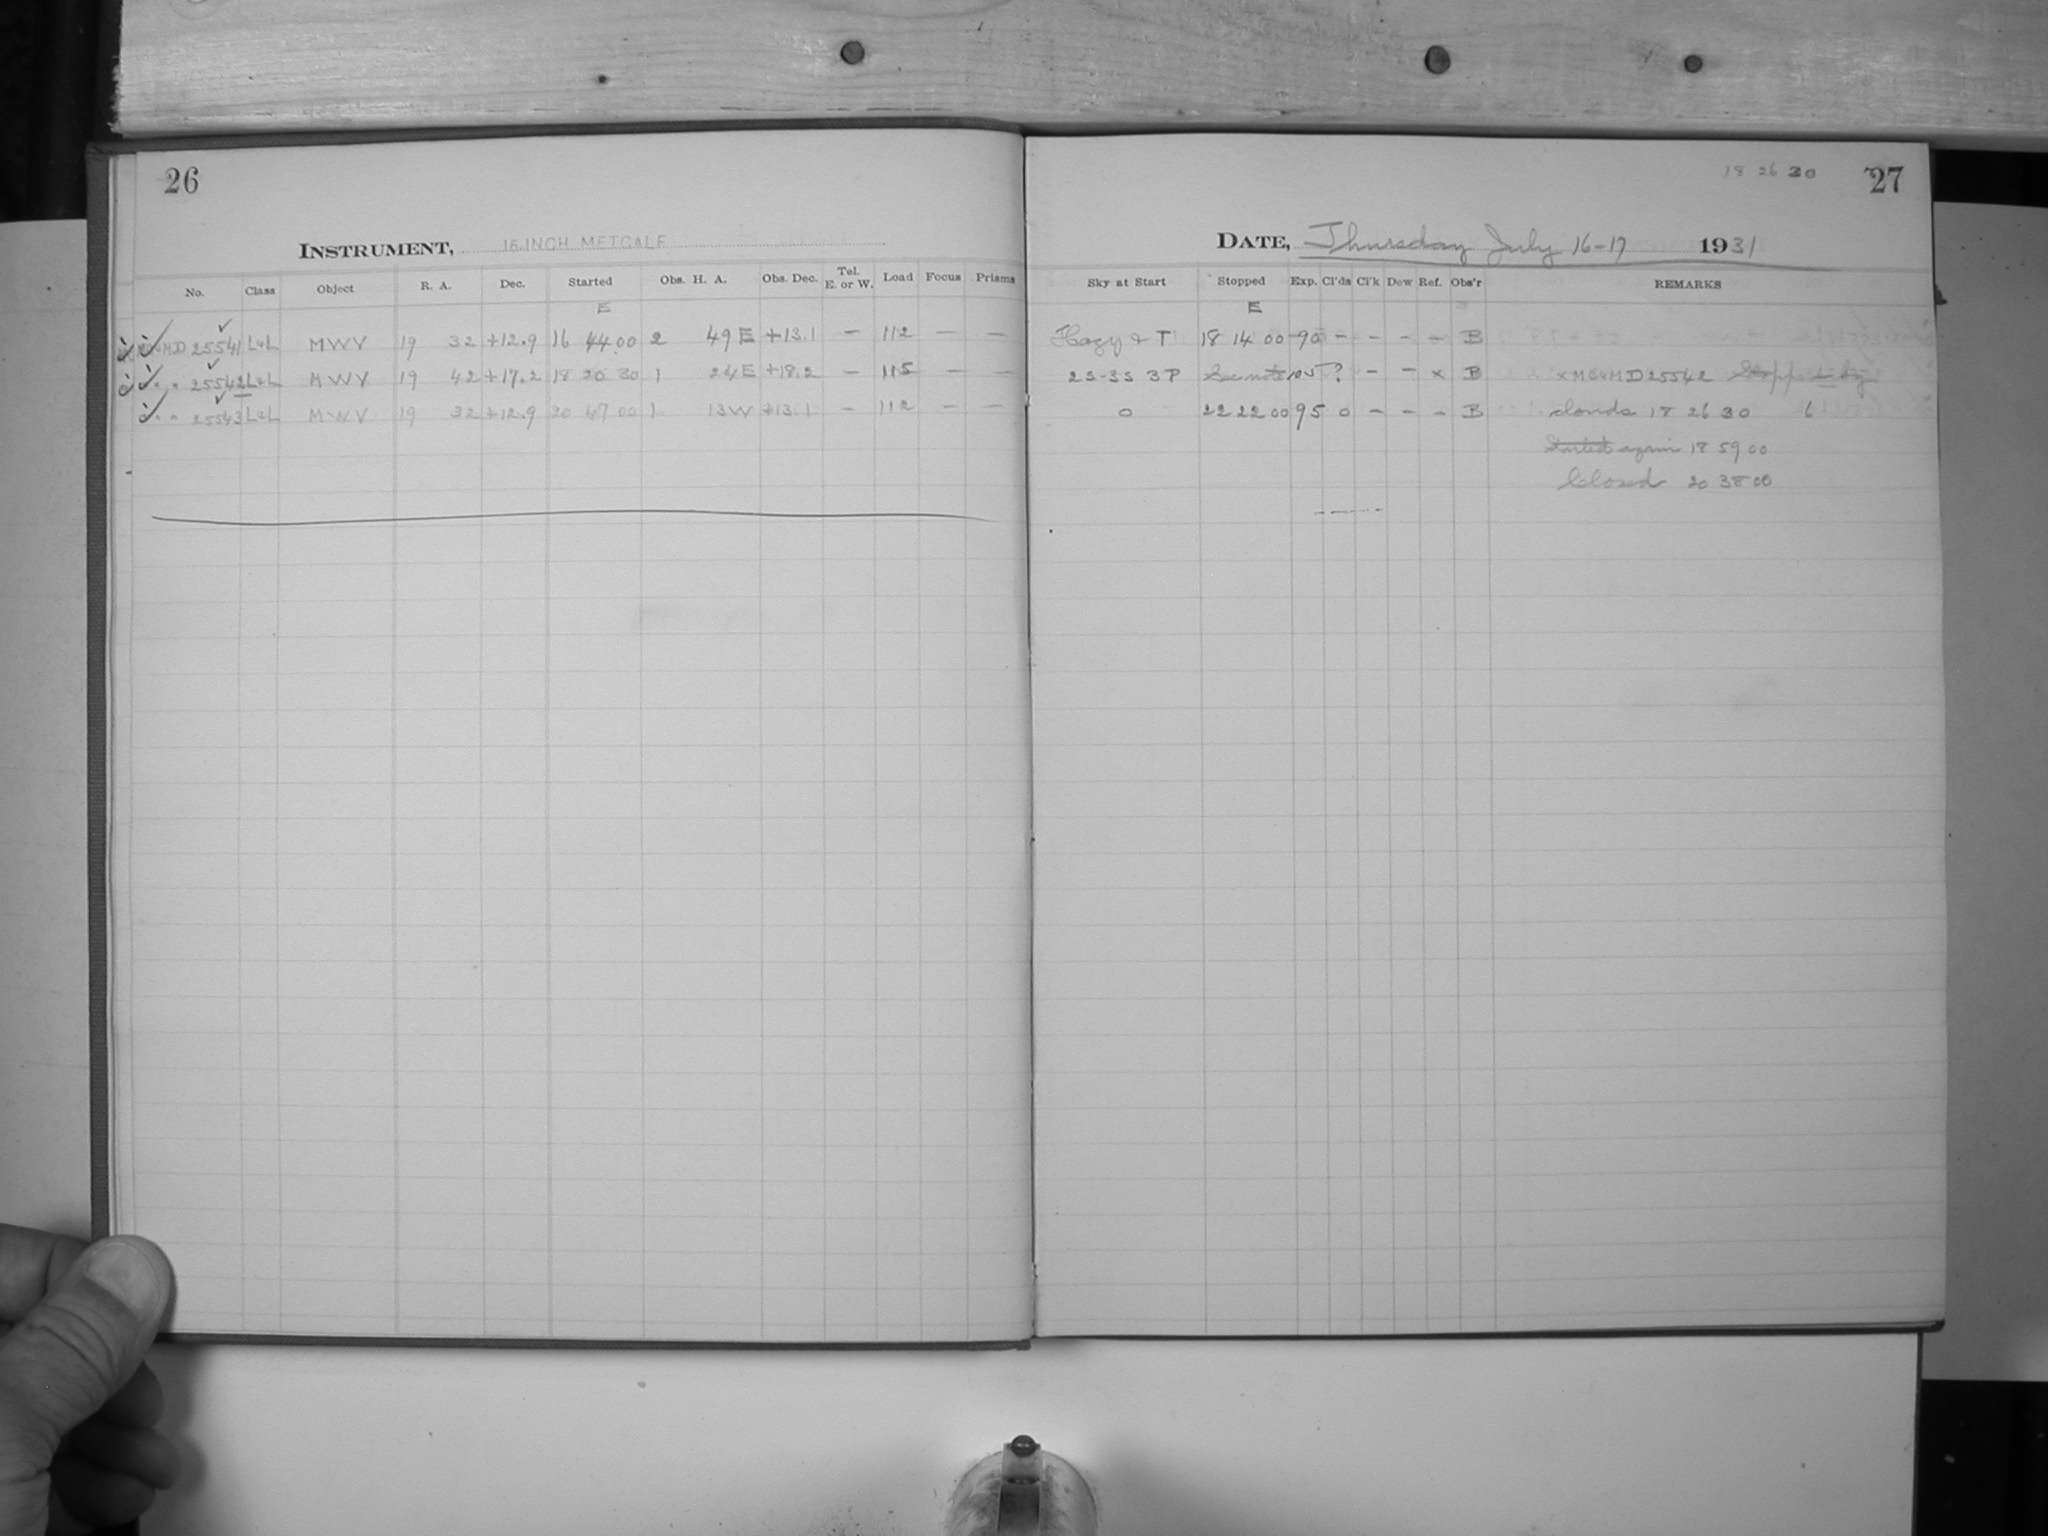 26
INSTRUMENT, 16 INCH METCALF
No. Class Object R. A. Dec. Started Obs. H. A. Obs. Dec. Tel. E. or W. Load Focus Prisms
E
25541 L&L MWV 19 32 +12.9 16 44 00 2 49 E +13.1 — 112 — —
" " 25542 L&L MWV 19 42 +17.2 18 20 30 1 24 E +18.2 — 115 — —
" " 25543 L&L MWV 19 32 +12.9 20 47 00 1 13 W +13.1 — 112 — —
18 26 30 27
DATE, Thursday July 16-17 1931
Sky at Start Stopped Exp. Cl'ds Cl'k Dew Ref. Obs'r REMARKS
E
Hazy & T 18 14 00 90 — — — — B
2S-3S 3P See note 105 ? — — x B x MC&MD 25542 Stopped by
0 22 22 00 95 0 — — — B clouds 18 26 30
Started again 18 59 00
Closed 20 38 00